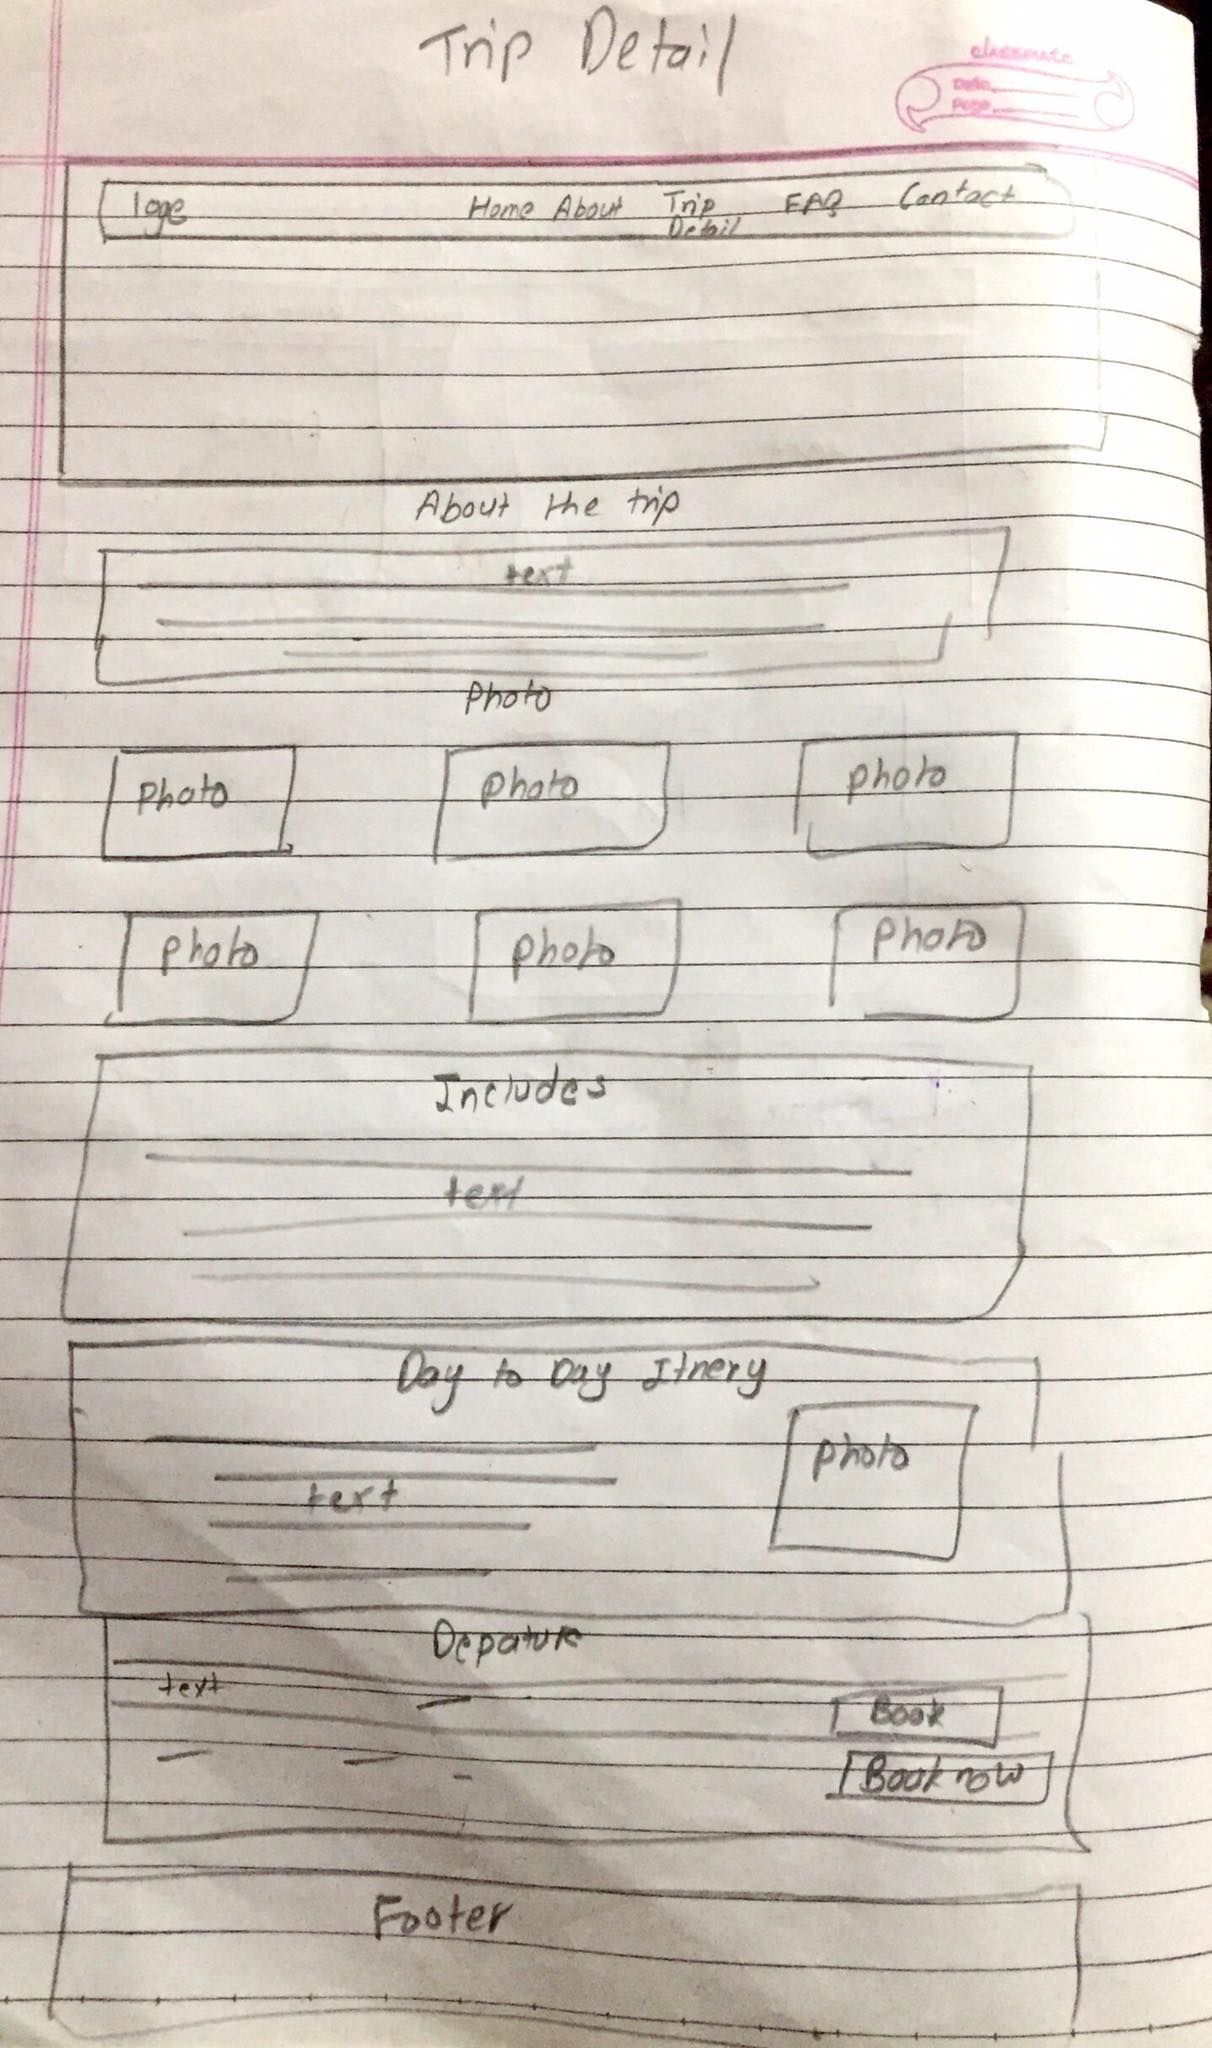 Trip Detail
classmate
Date
Page
loge
Home About Trip Detail FAQ Contact
About the trip
text
Photo
Photo Photo Photo
Photo Photo Photo
Includes
text
Day to Day Itnery
Photo
text
Depature
text
Book
Book now
Footer